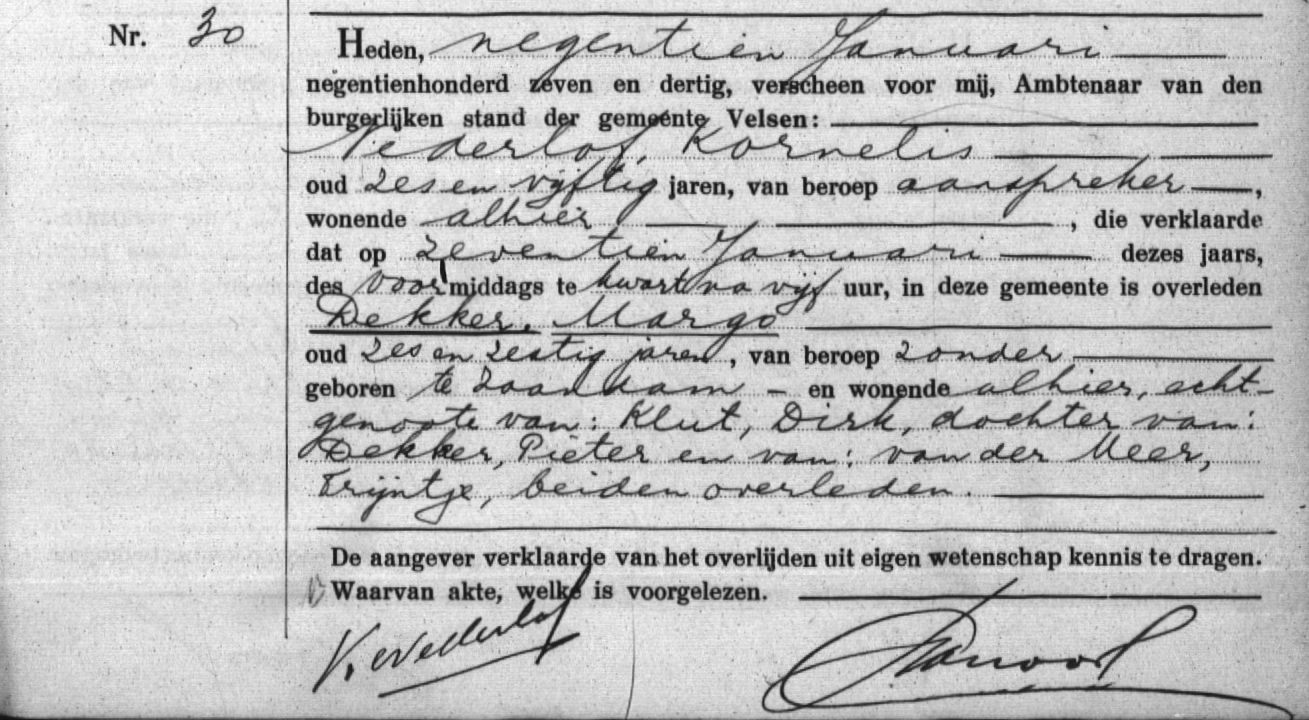 Nr. 30
Heden, negentien Januari
negentienhonderd zeven en dertig, verscheen voor mij, Ambtenaar van den
burgerlijken stand der gemeente Velsen:
Nederlof, Kornelis
oud zesen vijftig jaren, van beroep aanspreker,
wonende alhier, die verklaarde
dat op zeventien Januari dezes jaars,
des voormiddags te kwart na vijf uur, in deze gemeente is overleden
Dekker, Margo
oud zes en zestig jaren, van beroep zonder
geboren te Zaandam - en wonende alhier, echt-
genoote van: Klut, Dirk, dochter van:
Dekker, Pieter en van: van der Meer,
Trijntje, beiden overleden
De aangever verklaarde van het overlijden uit eigen wetenschap kennis te dragen.
Waarvan akte, welke is voorgelezen.
K. Nederlof